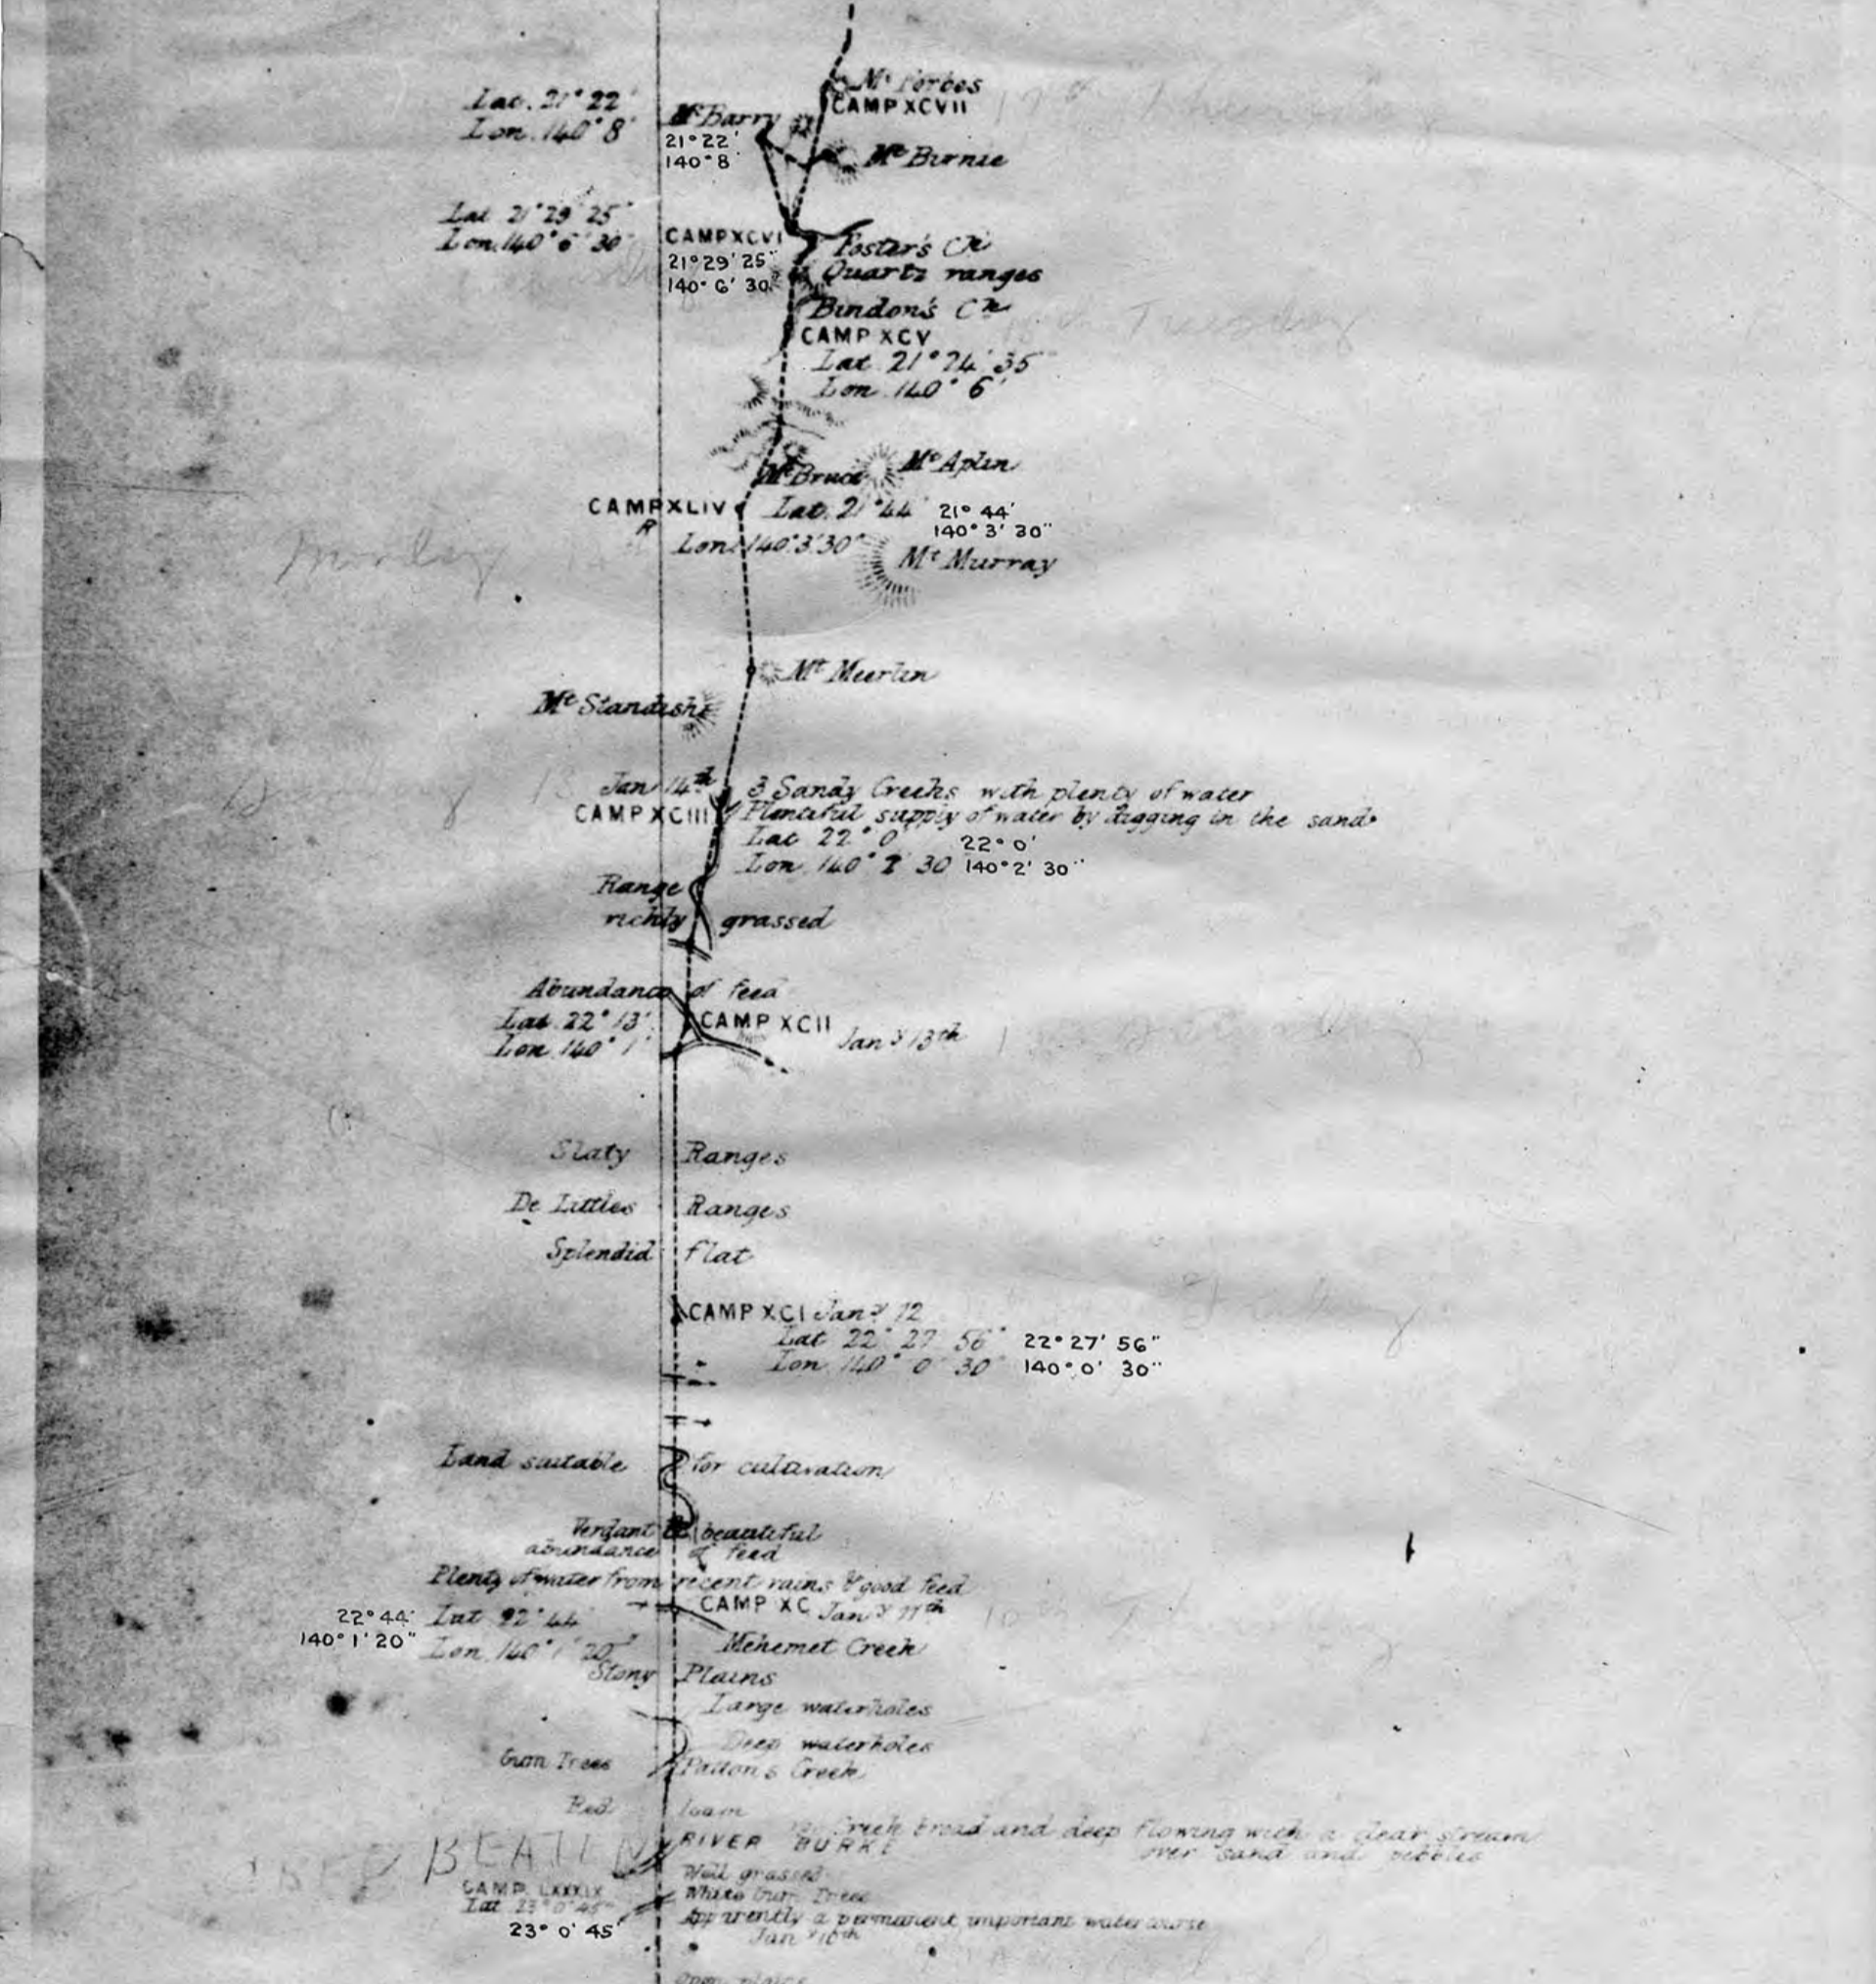 Mt Forbes
CAMP XCVII
Lat. 21° 22'
Lon. 140° 8'
Mt Barry
21° 22'
140° 8'
Mt Birnie
Lat 21° 29' 25"
Lon. 140° 6' 30"
CAMP XCVI
21° 29' 25"
140° 6' 30"
Foster's Ck
Quartz ranges
Bindon's Ck
CAMP XCV
Tuesday
Lat 21° 24' 35
Lon. 140° 6'
Mt Bruce
Mt Aplin
CAMP XLIV
R
Lat. 21° 44'
21° 44'
140° 3' 30"
Lon. 140° 3' 30"
Monday
Mt Murray
Mt Meerlin
Mt Standish
Jan 14th
3 Sandy Creeks with plenty of water
CAMP XCIII
Plentiful supply of water by digging in the sand.
Lat 22° 0'
22° 0'
Lon. 140° 2' 30
140° 2' 30"
Range
richly grassed
Abundance of feed
Lat. 22° 13'
Lon. 140° 1'
CAMP XCII
Jany 13th
Slaty Ranges
De Littles Ranges
Splendid flat
CAMP XCI Jany 12
Friday
Lat 22° 27' 56"
22° 27' 56"
Lon. 140° 0' 30"
140° 0' 30"
Land suitable for cultivation
Verdant & beautiful
abundance of feed
Plenty of water from recent rains & good feed
CAMP XC Jany 11th
22° 44'
140° 1' 20"
Lat 22° 44'
Lon. 140° 1' 20"
Menemet Creek
Stony Plains
Large waterholes
Deep waterholes
Gum Trees
Patton's Creek
Red loam
Creek broad and deep flowing with a clear stream
over sand and pebbles
RIVER BURKE
BEATEN
Well grassed
CAMP LXXXIX
White Gum Trees
Lat 23° 0' 45"
23° 0' 45"
Apparently a permanent important watercourse
Jany 10th
Open plains